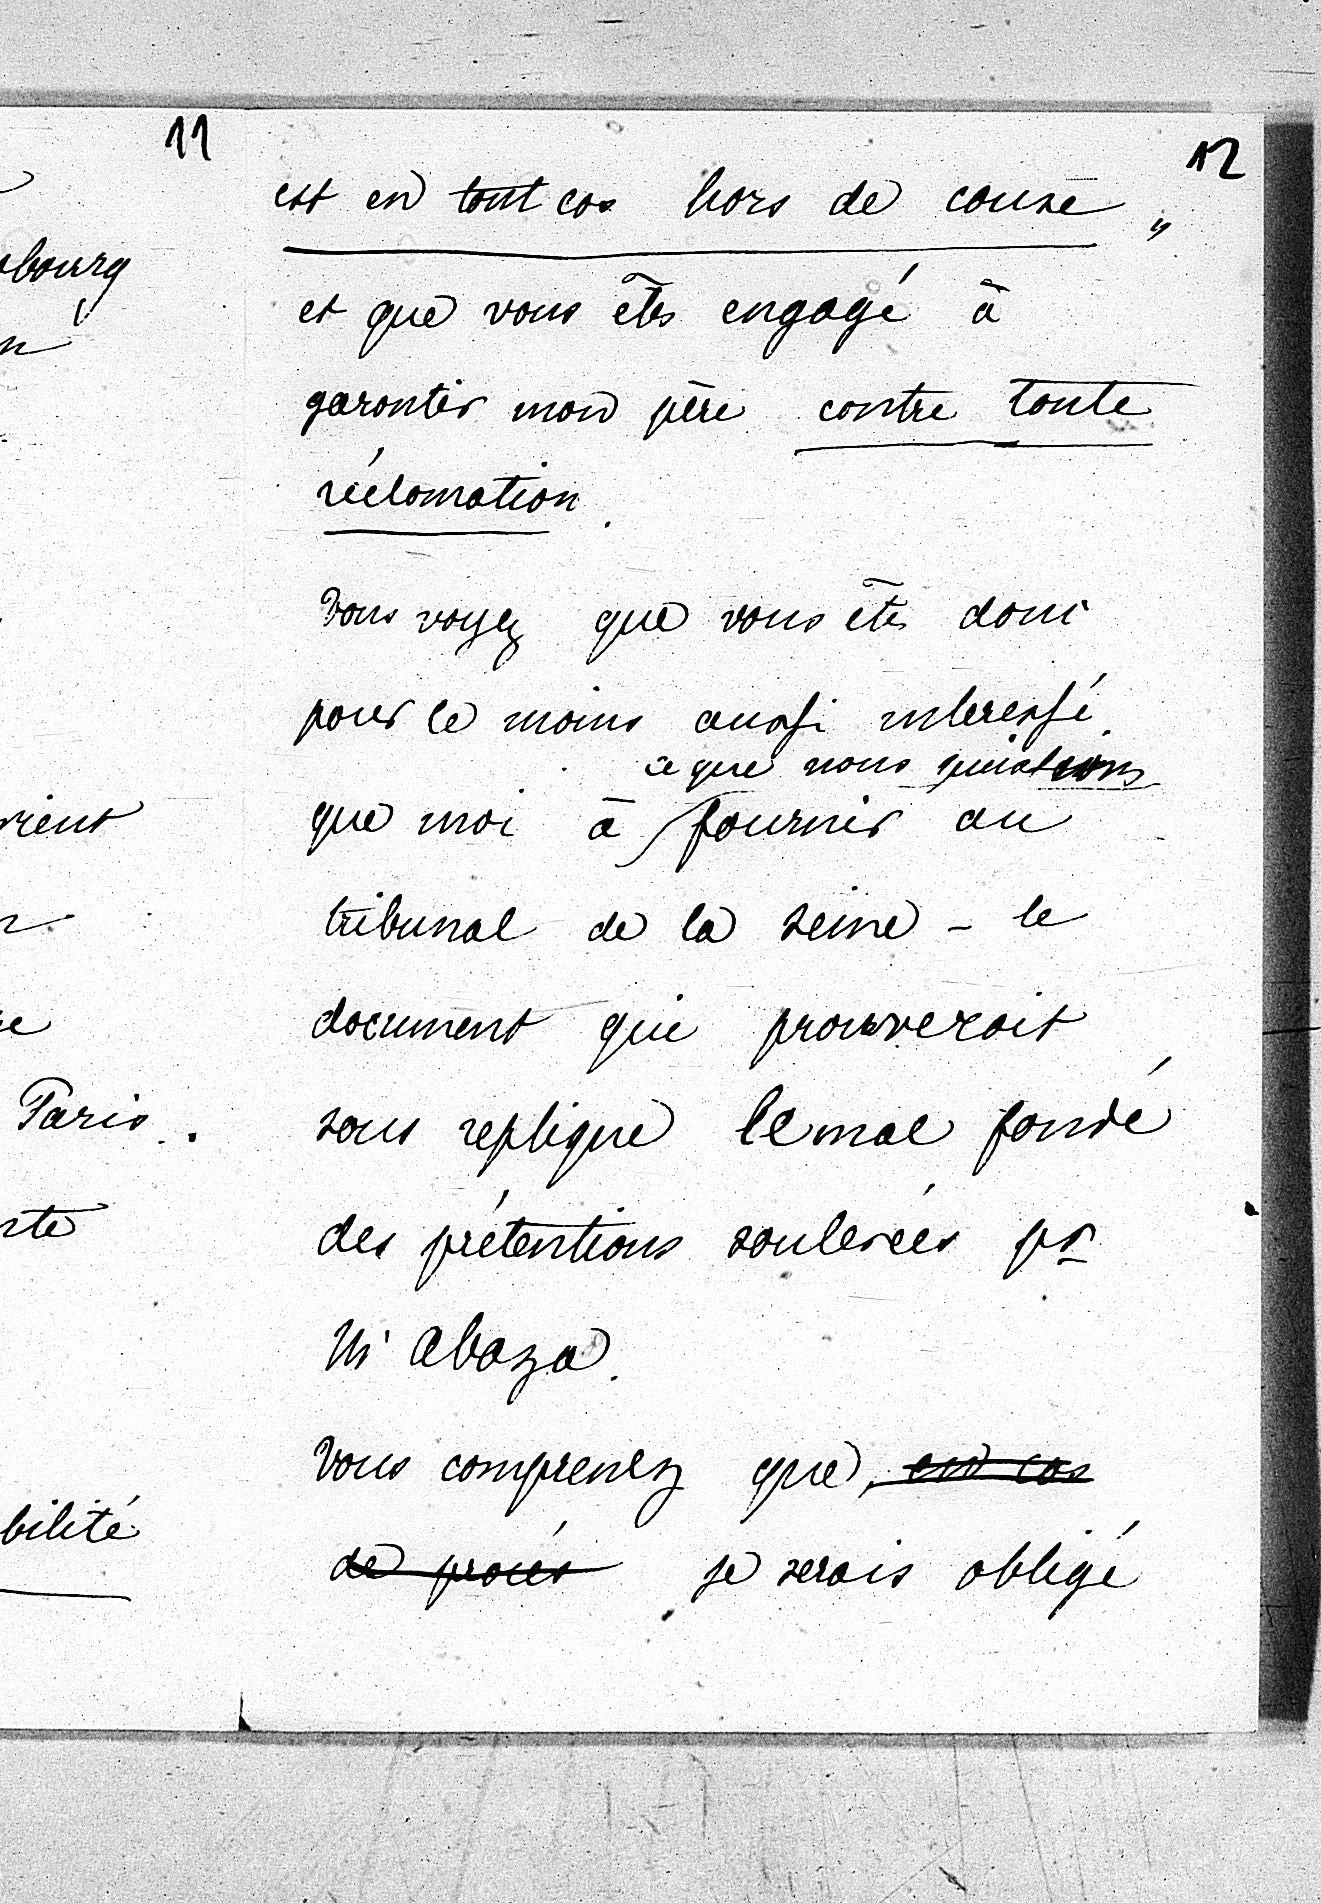 11
bourg
n
rient
Paris.
rte
bilité
12
est en tout cas hors de cause "
et que vous êtes engagé à
garantir mon père contre toute
réclamation.
Vous voyez que vous êtes donc
pour le moins aussi interessé
ce que nous puissions
que moi à fournir au
tribunal de la Seine - le
document qui prouverait
sous replique le mal fondé
des prétentions soulevées pr
Mr Abaza.
Vous comprenez que, en cas
de procés je serais obligé